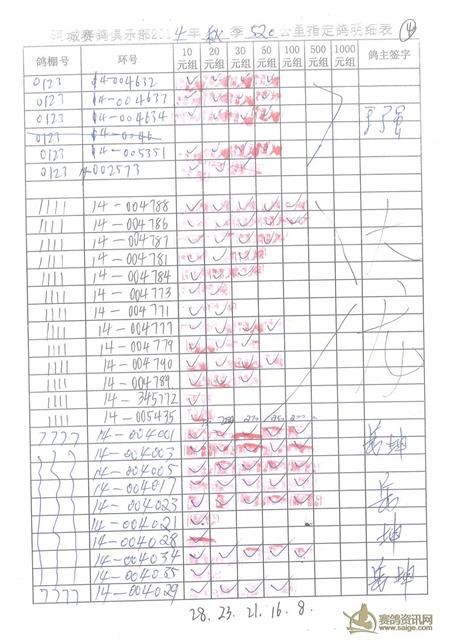 赛鸽俱乐部2014年秋季520公里指定鸽明细表 4
鸽棚号 环号 10元组 20元组 30元组 50元组 100元组 500元组 1000元组 鸽主签字
0123 14-004632
0123 14-004633
0123 14-004634
0123
0123 14-005351
0123 14-002573
1111 14-004788
1111 14-004786
1111 14-004787
1111 14-004781
1111 14-004784
1111 14-004773
1111 14-004771
1111 14-004777
1111 14-004779
1111 14-004790
1111 14-004789
1111 14-345772
1111 14-005435
7777 14-004001
14-004003
14-004005
14-004017
14-004023
14-004021
14-004028
14-004034
14-004035
7777 14-004029
28. 23. 21. 16. 8.
赛鸽资讯网
www.saige.com